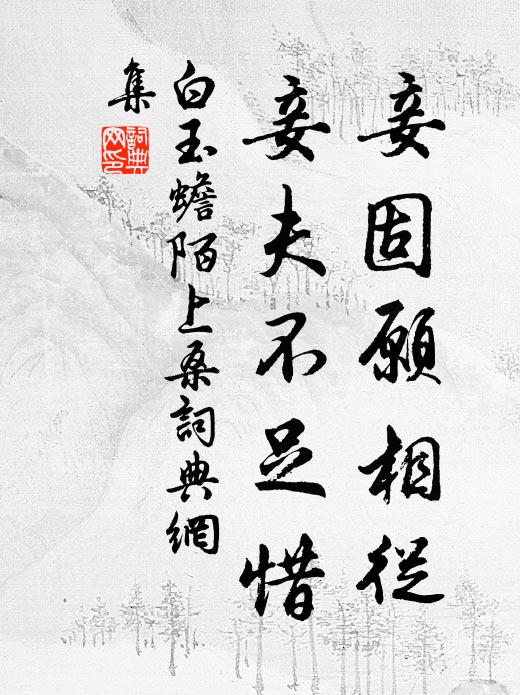 妾固願相從
妾夫不足惜
白玉蟾陌上桑詞典網
集
詞典
网印